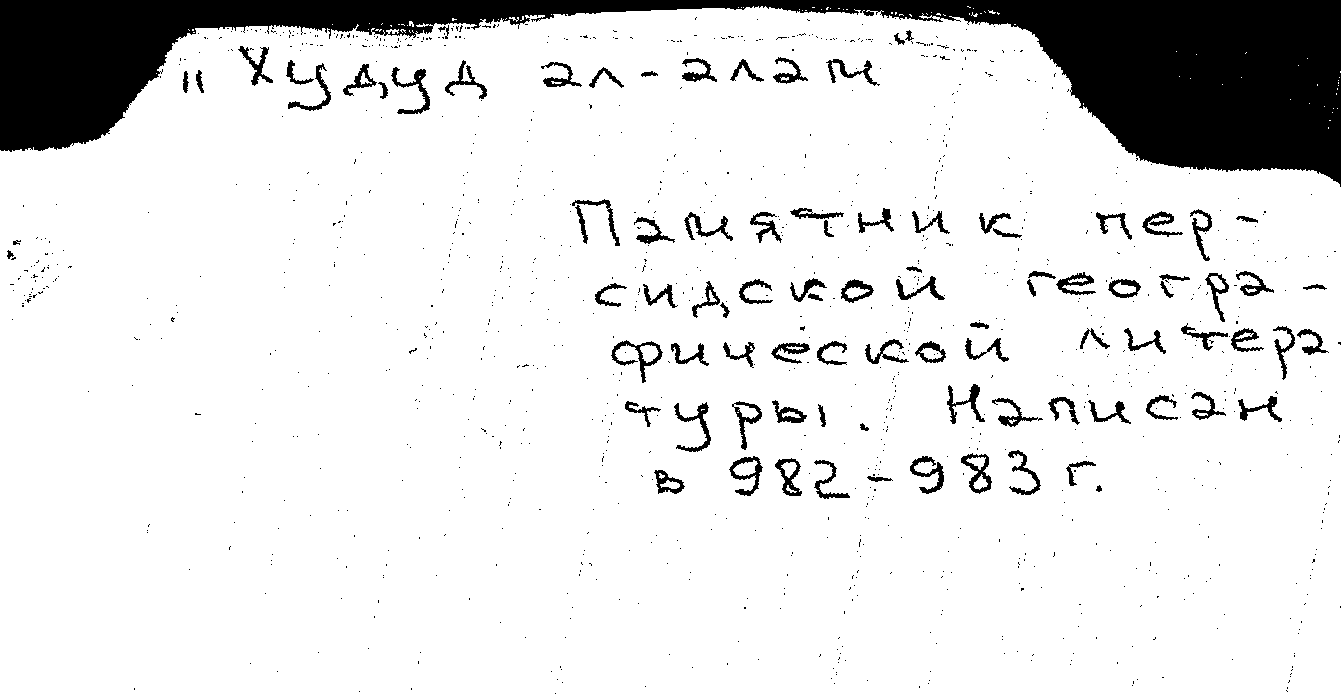 "Худуд ал-алам"
Памятник пер-
сидской геогра-
фической литера-
туры. Написан
в 982-983 г.